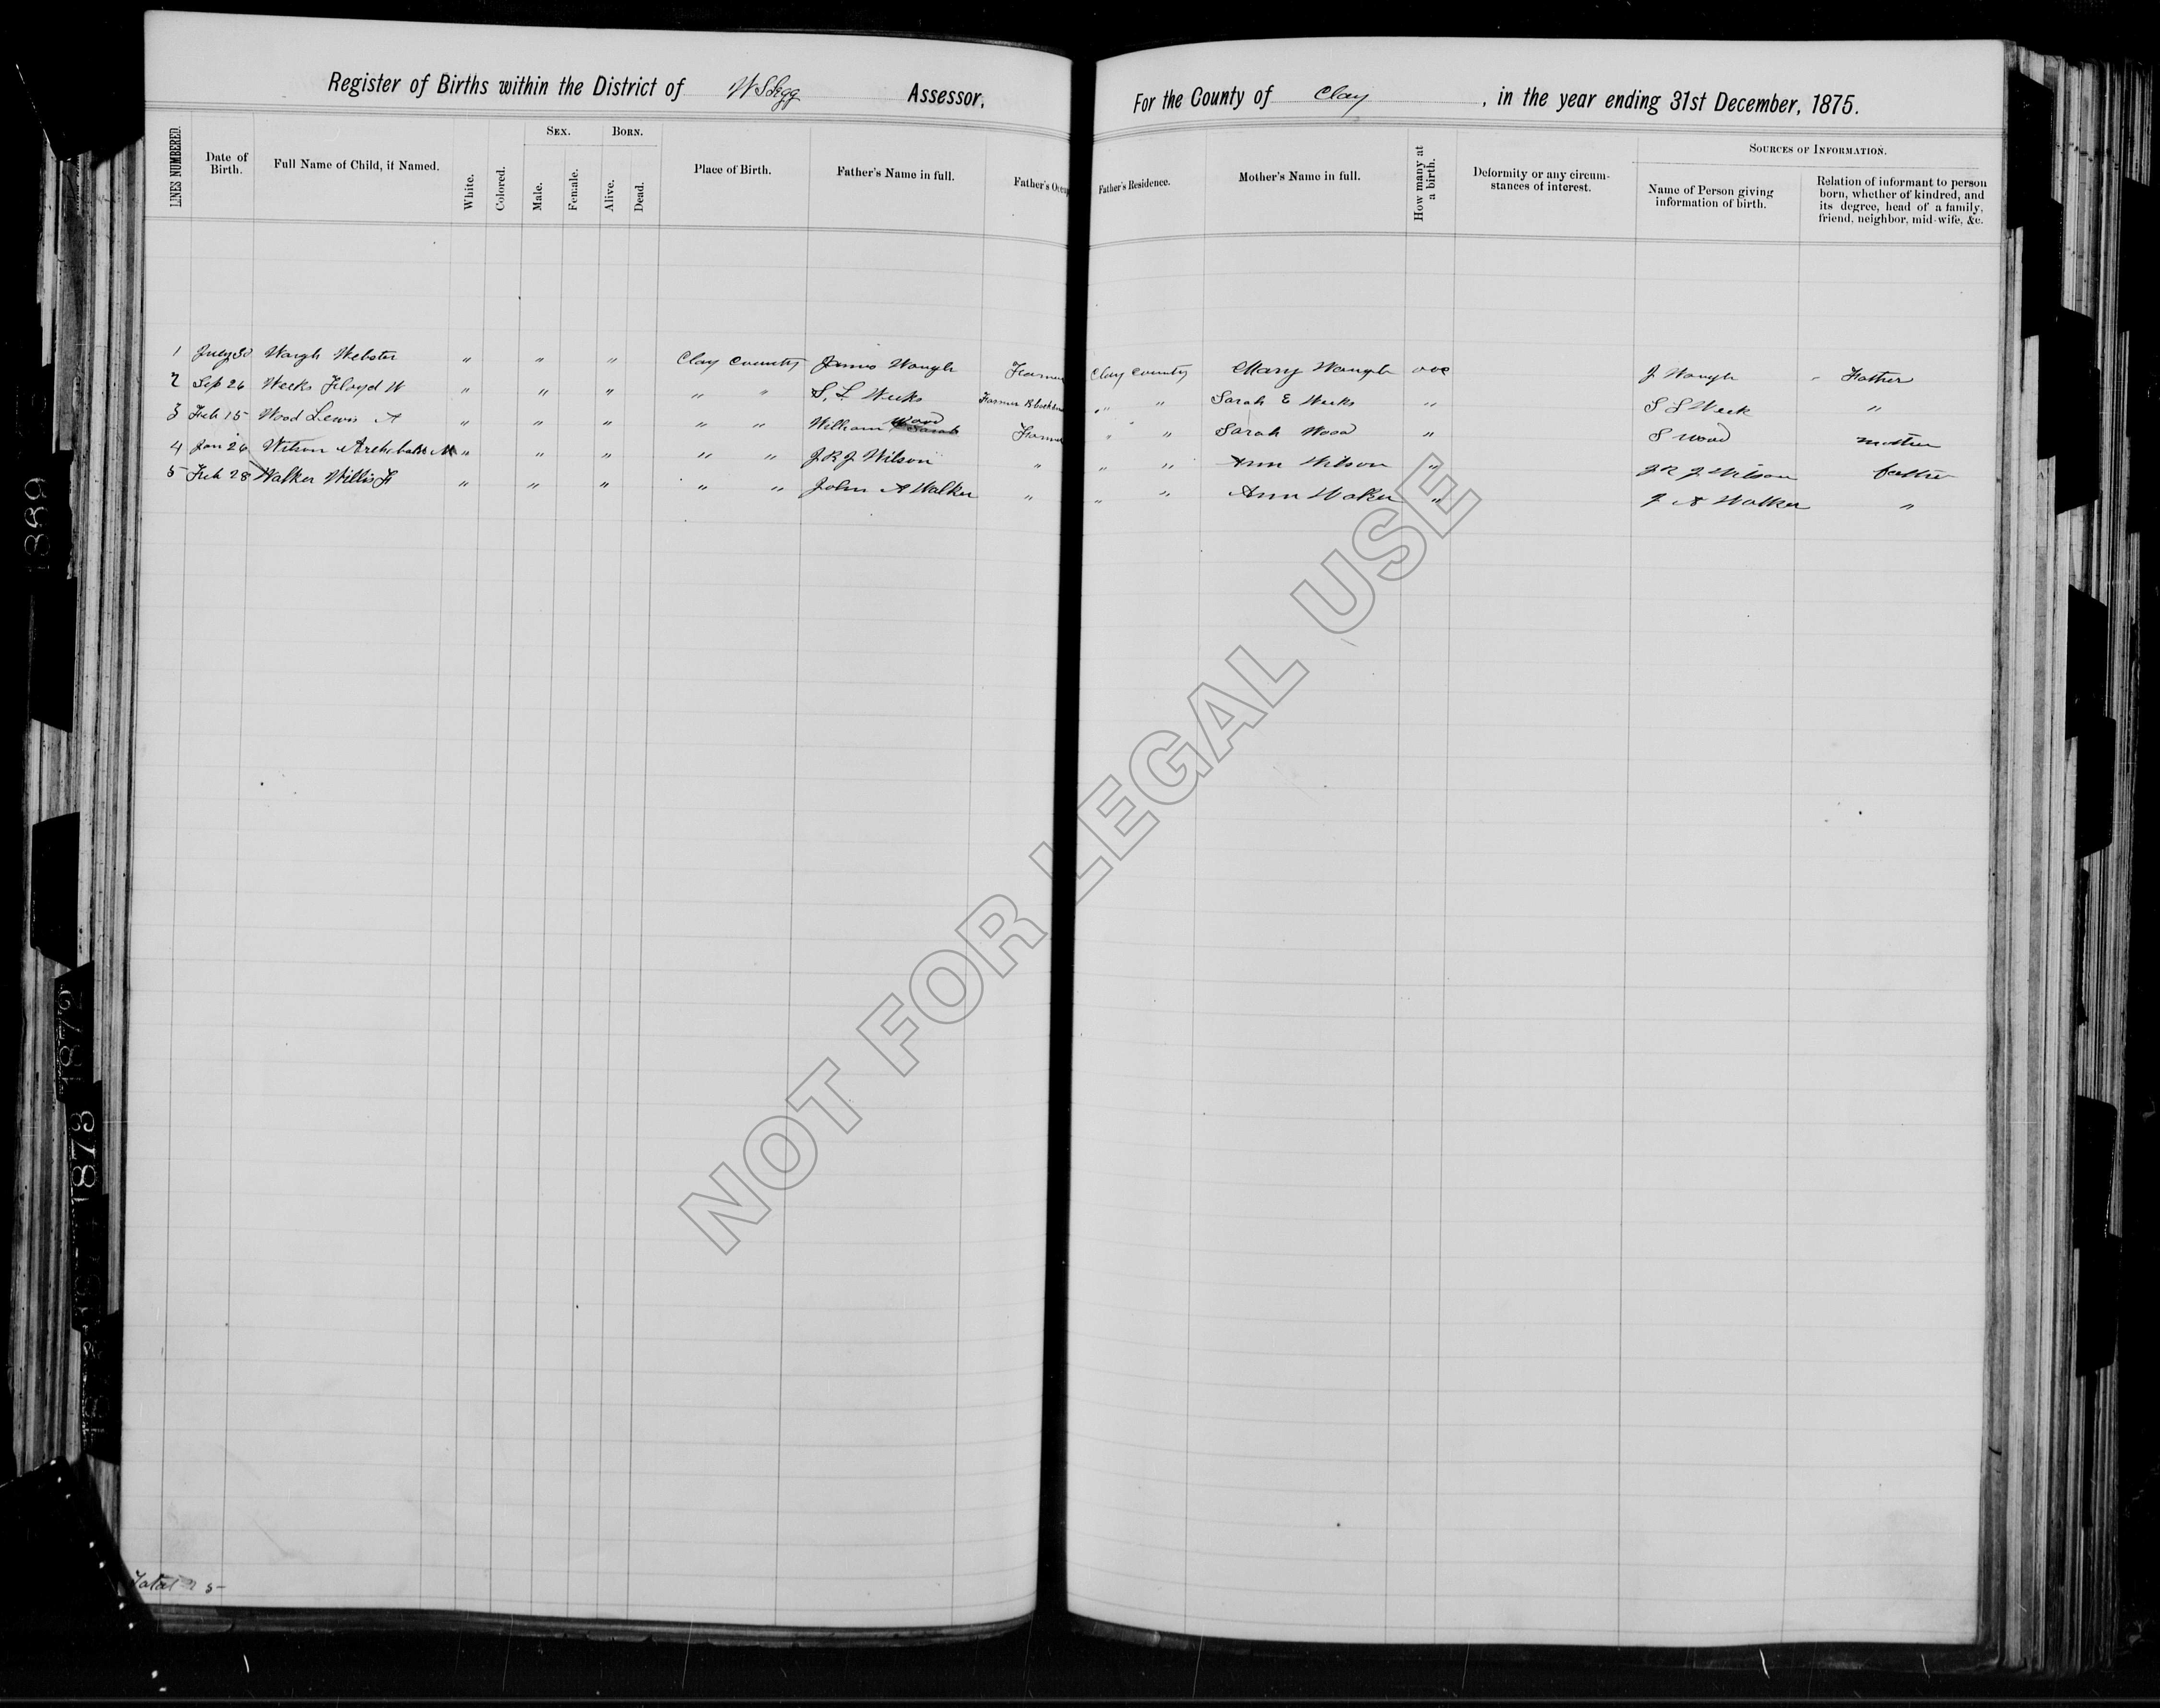 Register of Births within the District of W S Legg Assessor,
For the County of Clay, in the year ending 31st December, 1875.
LINES NUMBERED. Date of Birth. Full Name of Child, if Named. White. Colored. SEX. Male. Female. BORN. Alive. Dead. Place of Birth. Father's Name in full. Father's Occup
Father's Residence. Mother's Name in full. How many at a birth. Deformity or any circumstances of interest. SOURCES OF INFORMATION. Name of Person giving information of birth. Relation of informant to person born, whether of kindred, and its degree, head of a family, friend, neighbor, mid-wife, &c.
1 July 30 Waugh Webster " " " Clay County James Waugh Farmer Clay County Mary Waugh one J Waugh Father
2 Sep 26 Weeks Floyd W " " " " " S. L Weeks Farmer " " Sarah E Weeks " S L Week "
3 Feb 15 Wood Lewis A " " " " " William Wood Farmer " " Sarah Wood " S Wood mother
4 Jan 26 Wilson Archibald M " " " " " J R J Wilson " " " Ann Wilson " J R J Wilson father
5 Feb 28 Walker Willis F " " " " " John A Walker " " " Ann Waker " J A Walker "
Total 5
NOT FOR LEGAL USE
1889
1879
1878